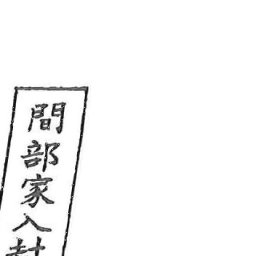 間部家入封